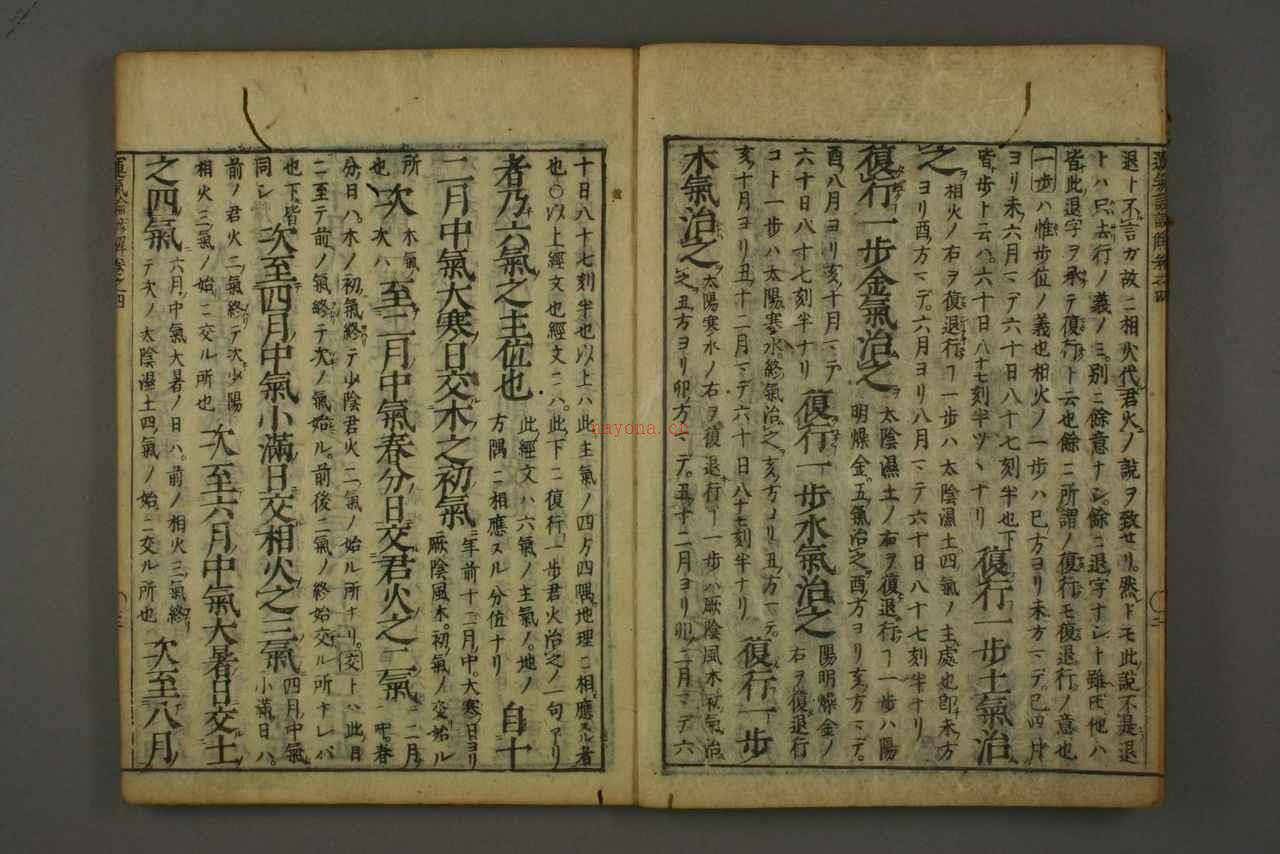 退ト不言ガ故ニ相火代君火ノ說ヲ致セリ。然トモ此說不是退
トハ只去行ノ義ノミ。別ニ餘意ナシ。餘ニ退字ナシト雖𪜈他ハ
皆此退字ヲ承テ復行ト云也餘ニ所謂ノ復行モ復退行ノ意也
一步ハ惟步位ノ義也相火ノ一步ハ巳方ヨリ未方マデ巳四月
ヨリ未六月マデ六十日八十七刻半也下
皆步ト云ハ六十日八十七刻半ヅヽナリ
復行一步土氣治
之
相火ノ右ヲ復退行フ一步ハ太陰濕土四氣ノ主處也即未方
ヨリ酉方マデ。六月ヨリ八月マデ六十日八十七刻半ナリ
復行一步金氣治之
太陰濕土ノ右ヲ復退行フ一步ハ陽
明燥金。五氣治之酉方ヨリ亥方マデ。
酉八月ヨリ亥十月マデ
六十日八十七刻半ナリ
復行一步水氣治之
陽明燥金ノ
右ヲ復退行
コト一步ハ太陽寒水。終氣治之亥方ヨリ丑方マデ。
亥十月ヨリ丑十二月マデ六十日八十七刻半ナリ
復行一步
木氣治之
太陽寒水ノ右ヲ復退行フ一步ハ厥陰風木初氣治
之丑方ヨリ卯方マデ。丑十二月ヨリ卯二月マデ六
十日八十七刻半也以上ハ此主氣ノ四方四隅地理ニ相應スル者
也○以上經文也經文ニハ。此下ニ復行一步君火治之ノ一句アリ
者乃六氣之主位也
此經文ハ六氣ノ主氣ノ。地ノ
方隅ニ相應スル分位ナリ
自十
二月中氣大寒日交木之初氣
年前十二月中。大寒日ヨリ
厥陰風木。初氣ノ交始ル
所
也
木氣
次ハ
次至二月中氣春分日交君火之二氣
二月
中。春
分日ハ木ノ初氣終テ少陰君火二氣ノ始ル所ナリ。交トハ此日
ニ至テ前ノ氣終テ次ノ氣始ル。前後二氣ノ終始交ル所ナレバ
也下皆
同シ
次至四月中氣小滿日交相火之三氣
四月中氣
小滿日ハ。
前ノ君火二氣終テ次少陽
相火三氣ノ始ニ交ル所也
次至六月中氣大暑日交土
之四氣
六月中氣大暑ノ日ハ。前ノ相火三氣終
テ次ノ太陰濕土四氣ノ始ニ交ル所也
次至八月
運氣論諺解卷之四
nayona.cn